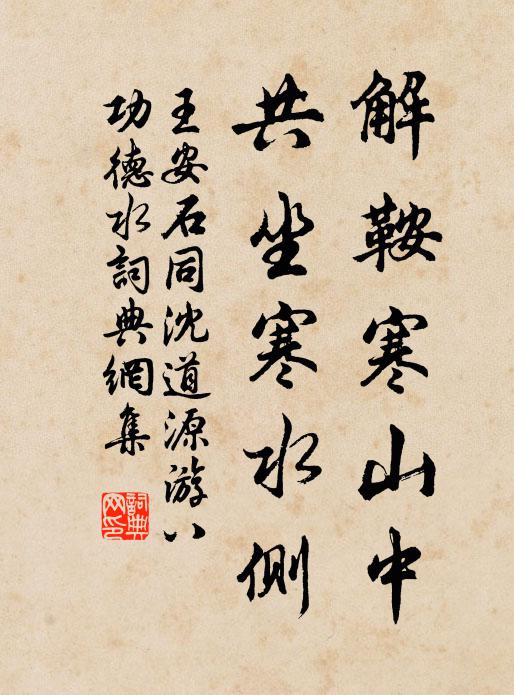 解鞍寒山中
共坐寒水側
王安石同沈道源游八
功德水詞典網集
詞典
网印